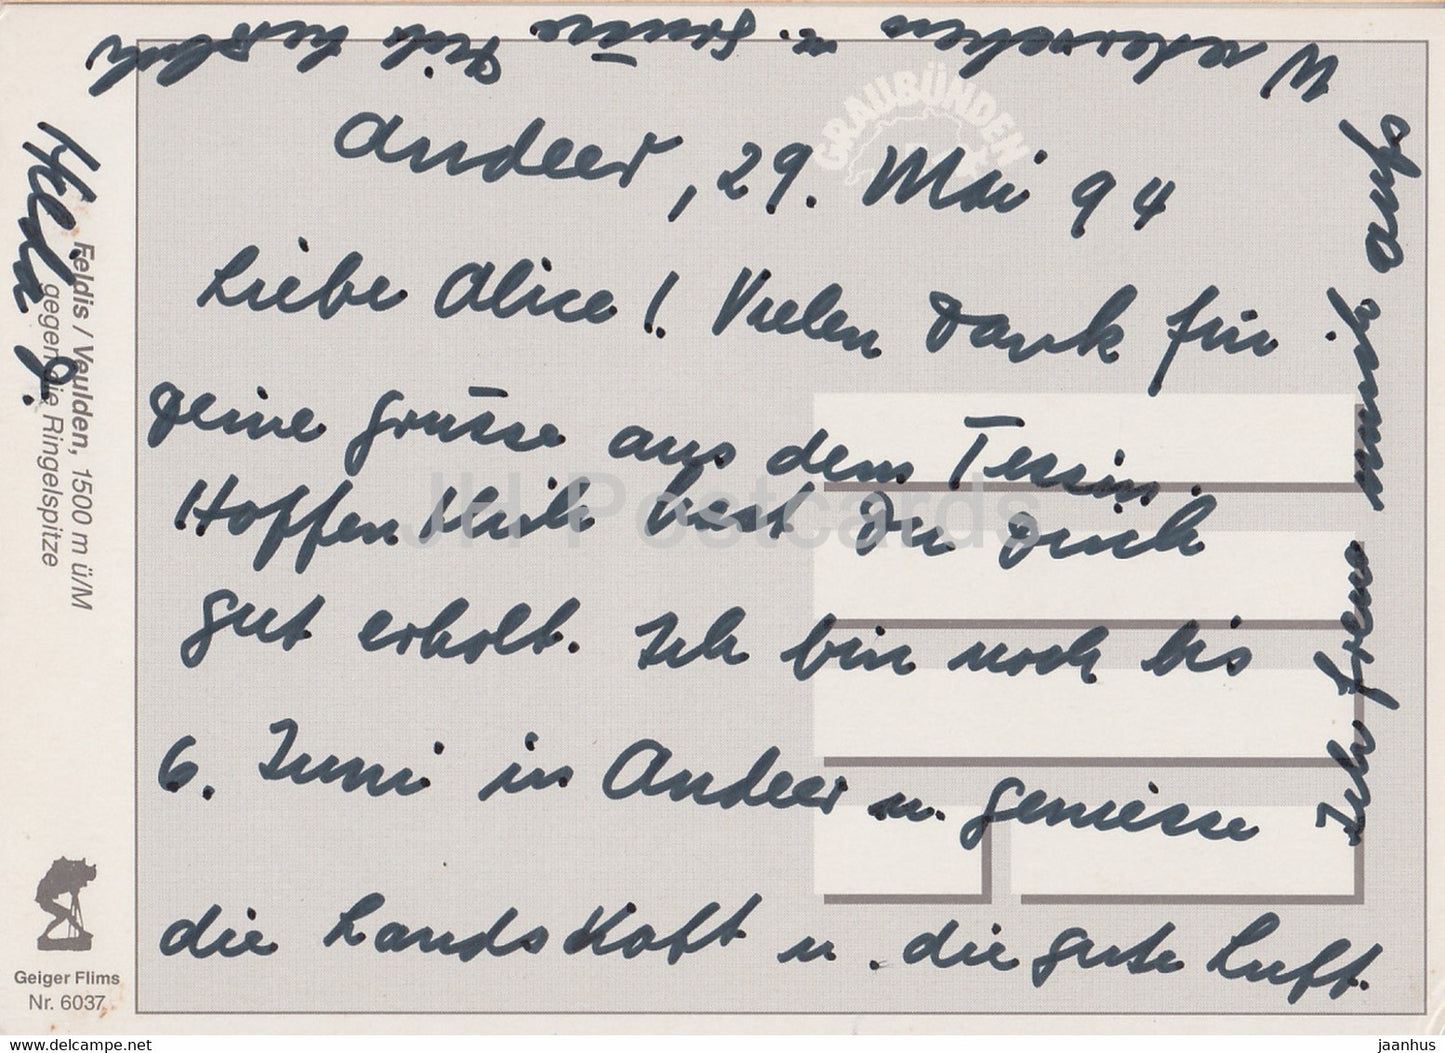 Andeer, 29. Mai 94
Liebe Alice! Vielen Dank für
Deine Grüsse aus dem Tessin.
Hoffentlich hast Du Dich
gut erholt. Ich bin noch bis
6. Juni in Andeer u. geniesse
die Landskaft u. die gute Luft.
Ich freue mich auf
Wiedersehen u. Grüsse Dich herzlich
Hilda G.
GRAUBÜNDEN
Feldis / Veulden, 1500 m ü/M
gegen die Ringelspitze
Geiger Flims
Nr. 6037
JH Postcards
www.delcampe.net
jaanhus